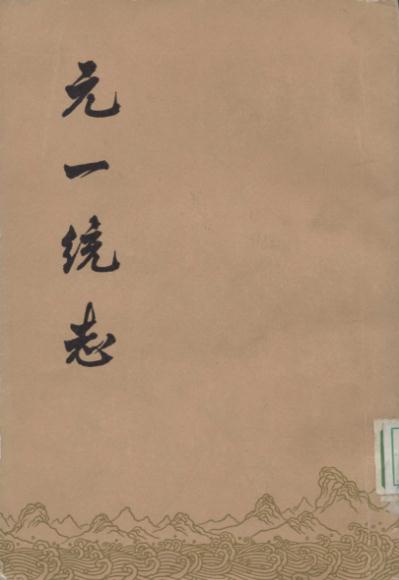 元一统志